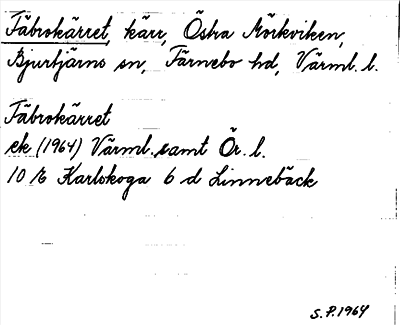 Fäbrokärret, kärr, Östra Mörkviken,
Bjurtjärns sn, Färnebo hd, Värml. l.
Fäbrokärret
ek (1964) Värml. samt Ör. l.
10 E Karlskoga 6 d Linnebäck
S.P. 1964